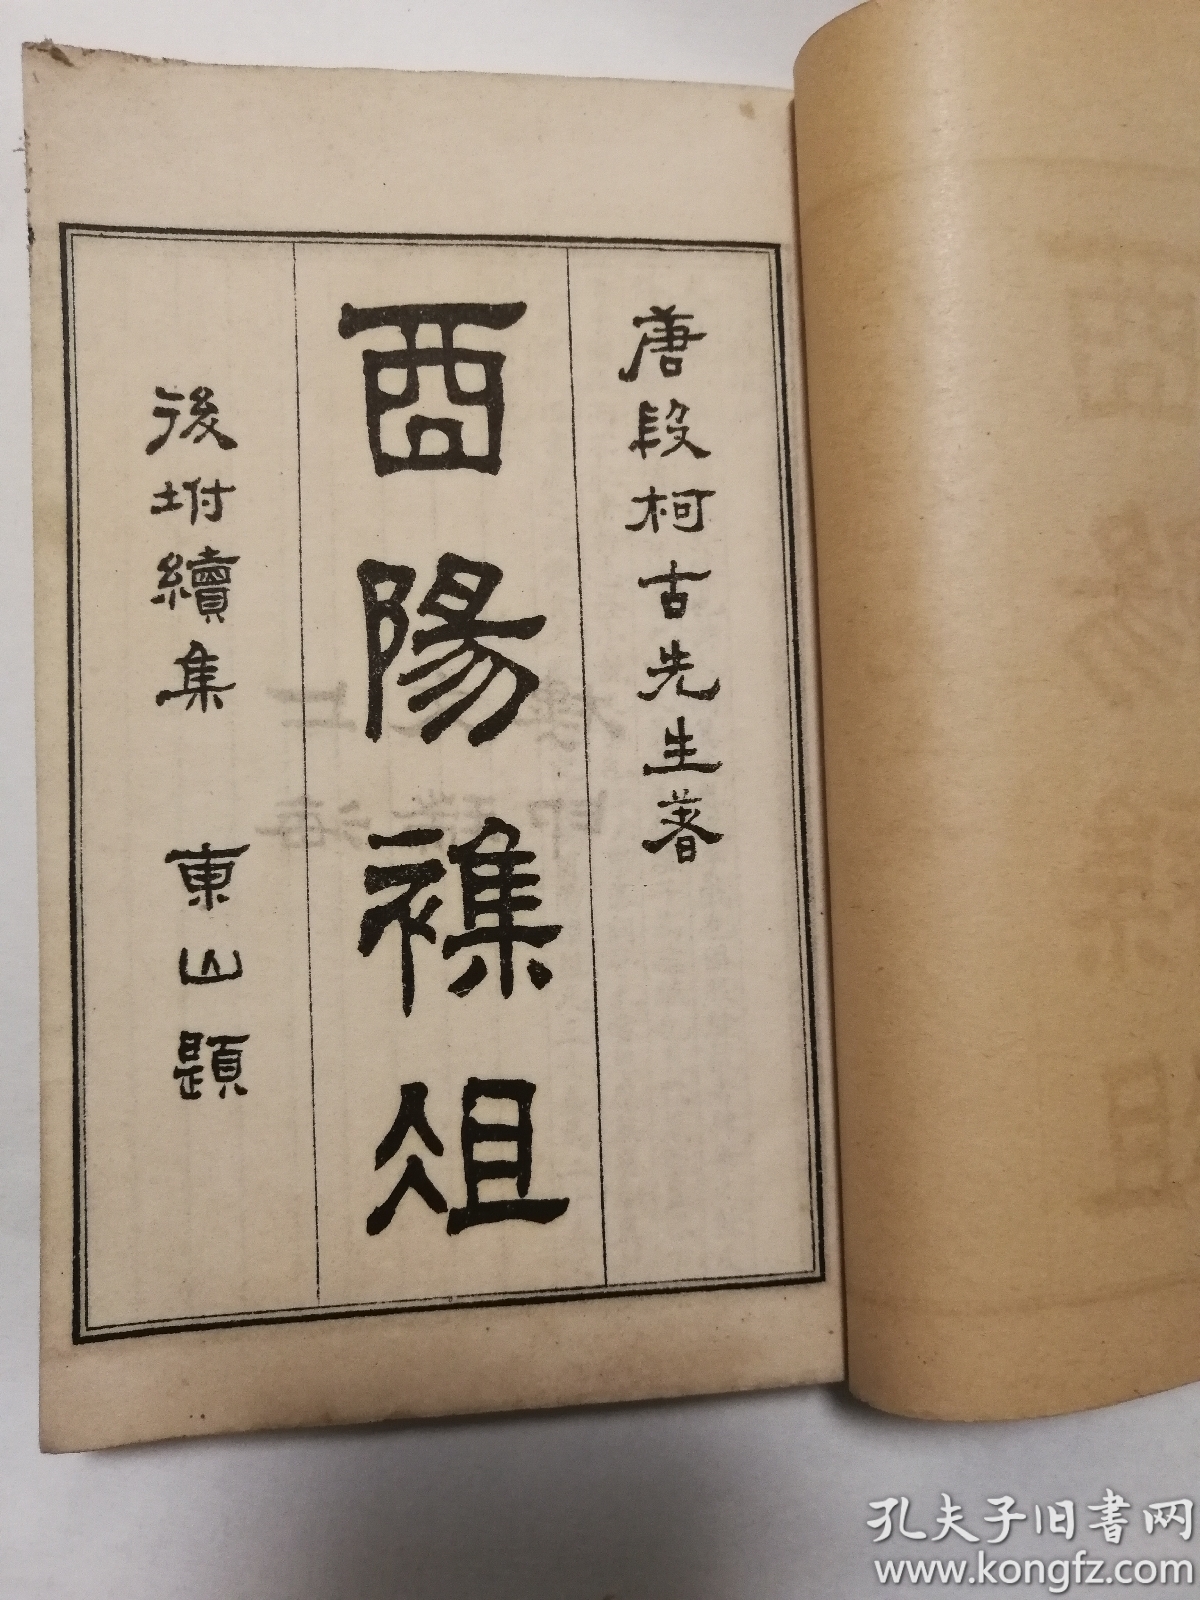 唐段柯古先生著
酉陽襍俎
後坿續集 東山題
孔夫子旧书网
www.kongfz.com